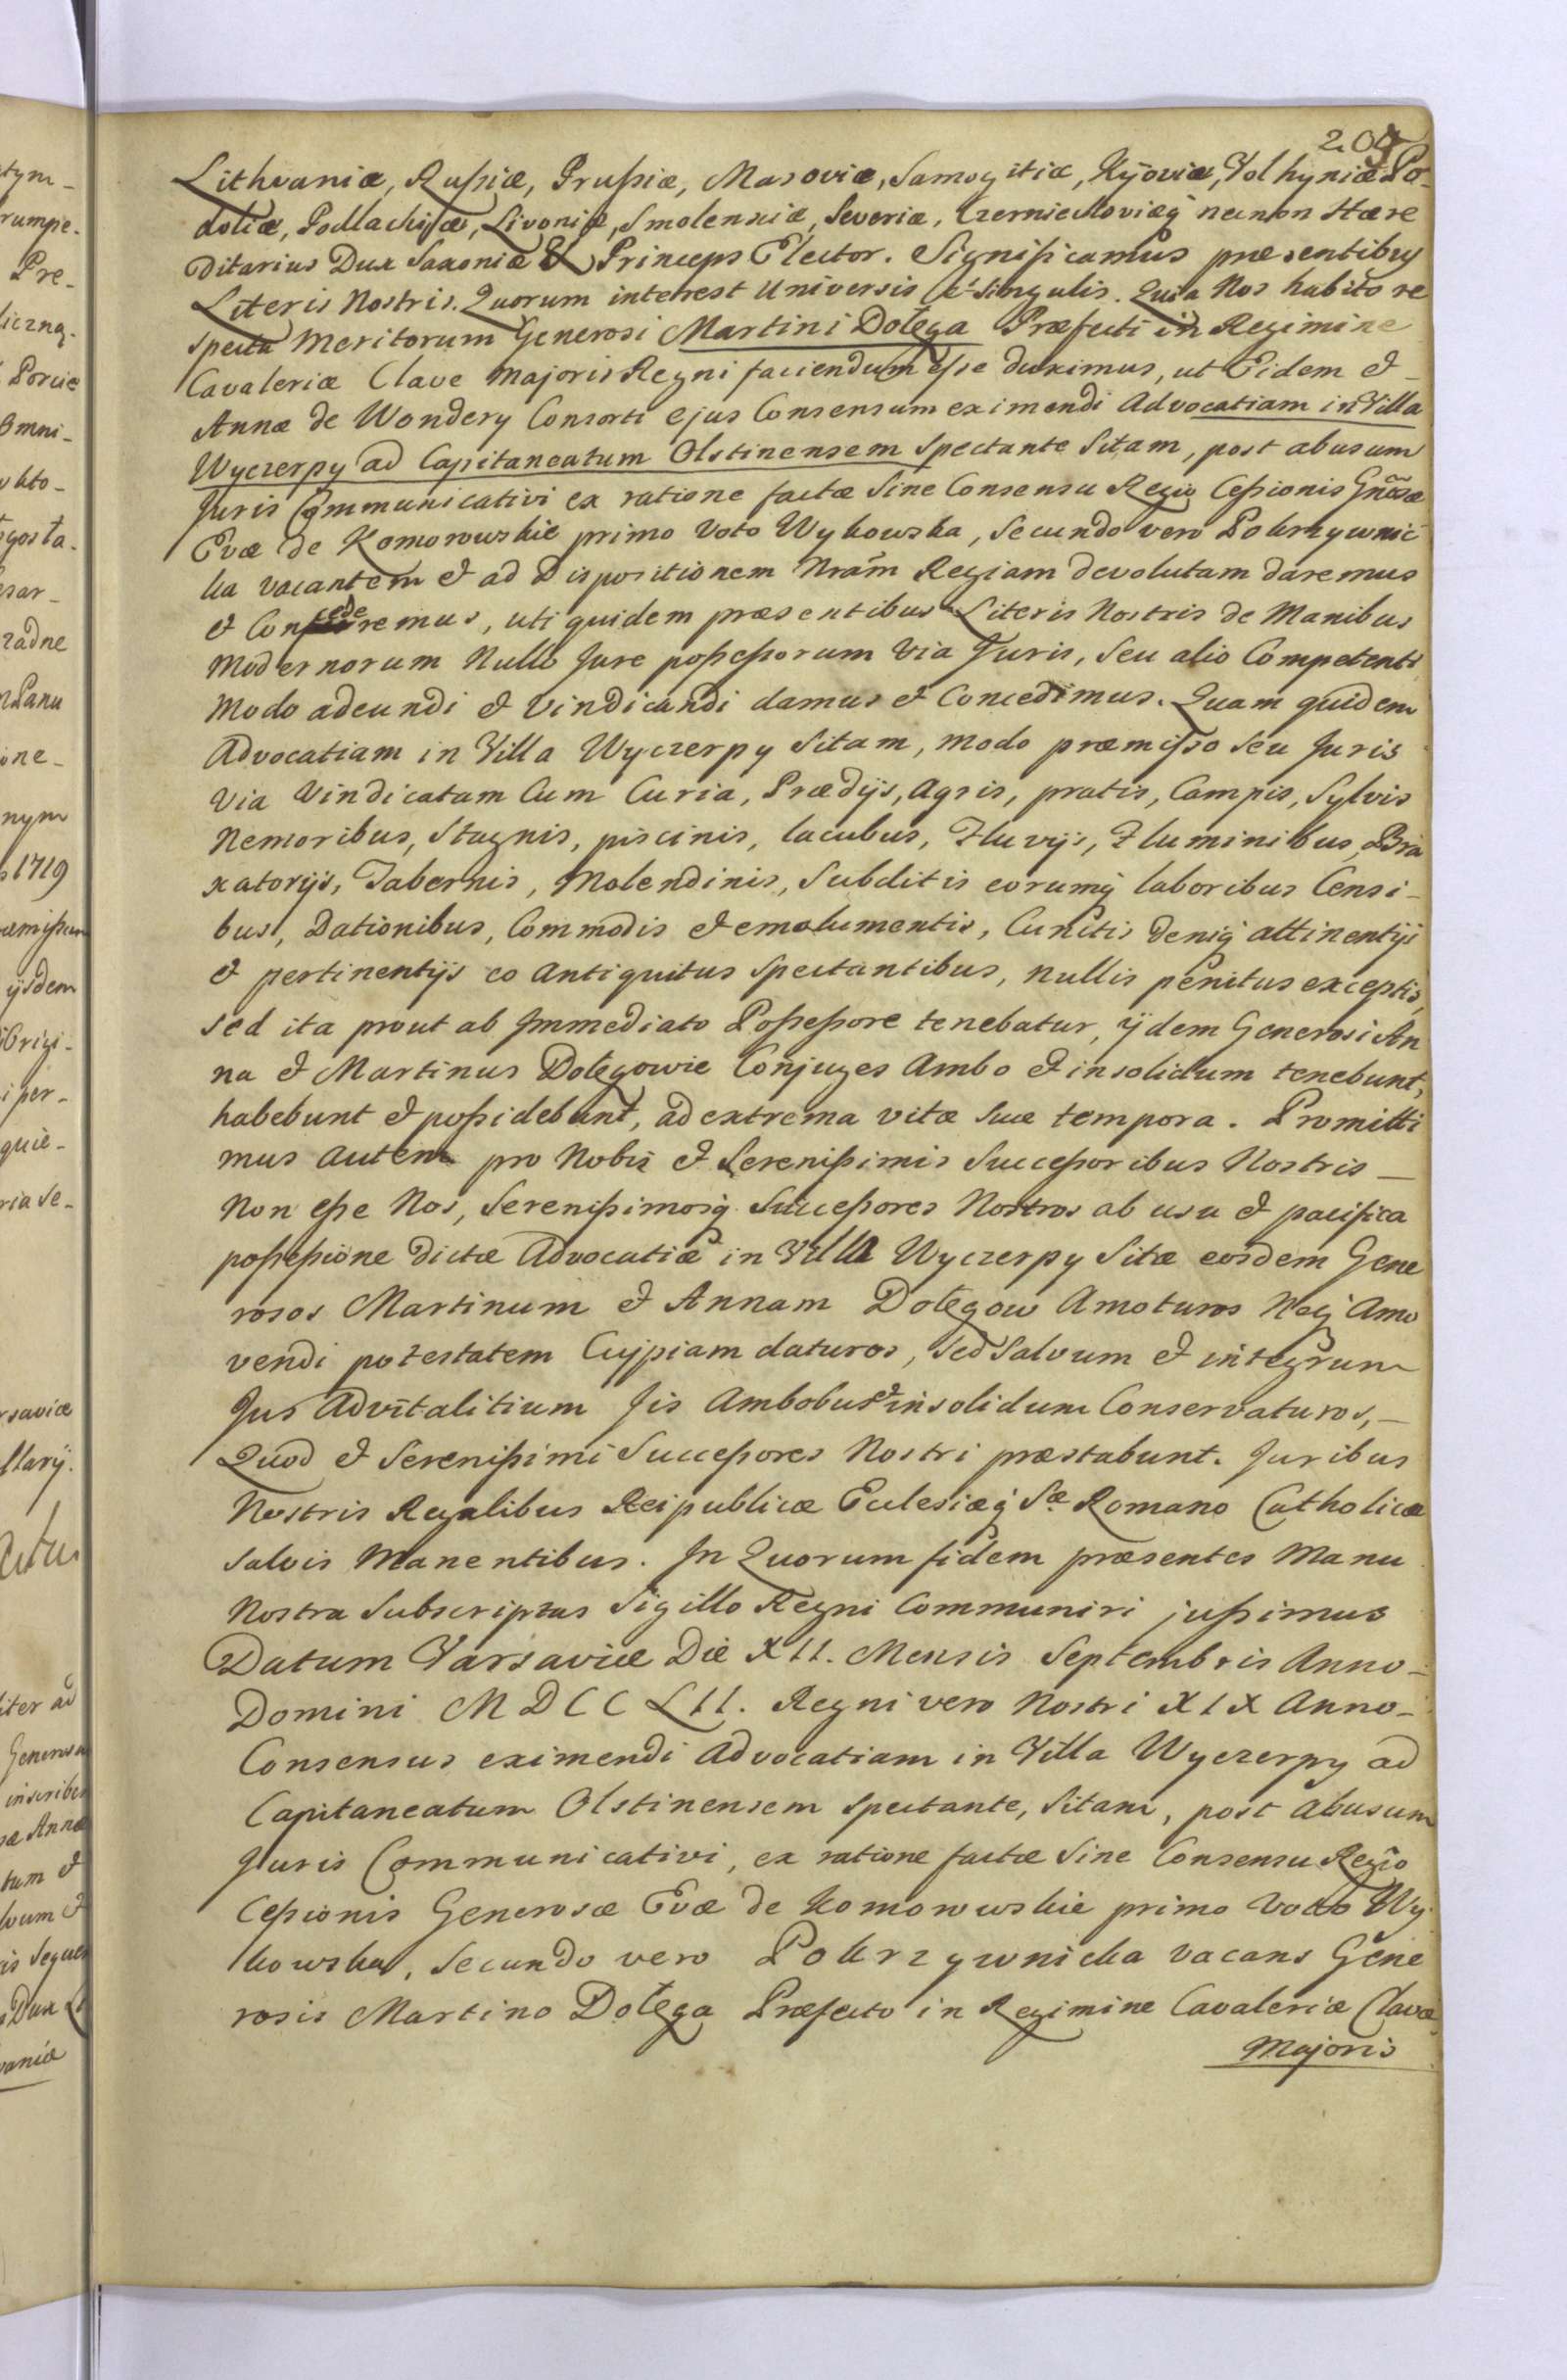 209
Lithvaniæ, Rußiæ, Prußiæ, Masoviæ, Samogitiæ, Kÿoviæ, Volhyniæ Po-
doliæ, Podlachiæ, Livoniæ, Smolensciæ, Severiæ, Czerniechoviæq necnon Hære
ditarius Dux Saxoniæ & Princeps Elector. Significamus præsentibus
Literis Nostris. Quorum interest Universis et Singulis. Quia Nos habito re
spectu Meritorum Generosi Martini Dołęga Præfecti in Regimine
Cavaleriæ Clave Majoris Regni faciendum eße duximus, ut Eidem et -
Annæ de Wondery Consorti ejus Consensum eximendi Advocatiam in Villa
Wyczerpy ad Capitaneatum Olstinensem Spectante Sitam, post abusum
Juris Communicativi ex ratione factæ Sine Consensu Regio Ceßionis Gnosæ
Evæ de Komorowskie primo Voto Wykowska, Secundo vero Pokrzywnic
ka vacantem et ad Dispositionem Nram Regiam devolutam daremus
et Concederemus, uti quidem præsentibus Literis Nostris de Manibus
Modernorum Nullo Jure poßeßorum Via Juris, Seu alio Competenti
Modo adeundi et Vindicandi damus et Concedimus. Quam quidem
Advocatiam in Villa Wyczerpy Sitam, Modo præmißo seu Juris
Via Vindicatam Cum Curia, Prædijs, Agris, pratis, Campis, Sylvis
Nemoribus, Stagnis, piscinis, lacubus, Fluvijs, Fluminibus, Bra
xatorijs, Tabernis, Molendinis, Subditis eorumq laboribus Censi-
bus, Dationibus, Commodis et emolumentis, Cunctis deniq attinentijs
et pertinentijs eo Antiquitus Spectantibus, nullis penitus exceptis,
sed ita prout ab Immediato Poßeßore tenebatur, ijdem Generosi An
na et Martinus Dołęgowie Conjuges Ambo et insolidum tenebunt,
habebunt et poßidebunt, ad extrema vitæ suæ tempora. Promitti
mus autem pro Nobis et Sereniß imis Succeßoribus Nostris -
Non eße Nos, Serenißimosq Succeßores Nostros ab usu et pacifica
poßeßione dictæ Advocatiæ in Villa Wyczerpy Sitæ eosdem Gene
rosos Martinum et Annam Dołęgow Amoturos Neq Amo
vendi potestatem Cujpiam daturos, Sed Salvum et integrum
Jus Advitalitium Jis Ambobus et insolidum Conservaturos, -
Quod et Serenißimi Succeßores Nostri præstabunt. Juribus
Nostris Regalibus Reipublicæ Eclesiæq Sæ Romano Catholicæ
Salvis Manentibus. In Quorum fidem præsentes Manu
Nostra Subscriptas Sigillo Regni Communiri jußimus
Datum Varsaviæ Die XII. Mensis Septembris Anno -
Domini MDCCLII. Regni vero Nostri XIX Anno -
Consensus eximendi Advocatiam in Villa Wyczerpy ad
Capitaneatum Olstinensem Spectante, Sitam, post Abusum
Juris Communicativi, ex ratione factæ Sine Consensu Regio
Ceßionis Generosæ Evæ de Komorowskie primo Voto Wy
kowska, Secundo vero Pokrzywnicka vacans Gene
rosis Martino Dołęga Præfecto in Regimine Cavaleriæ Clavæ
Majoris